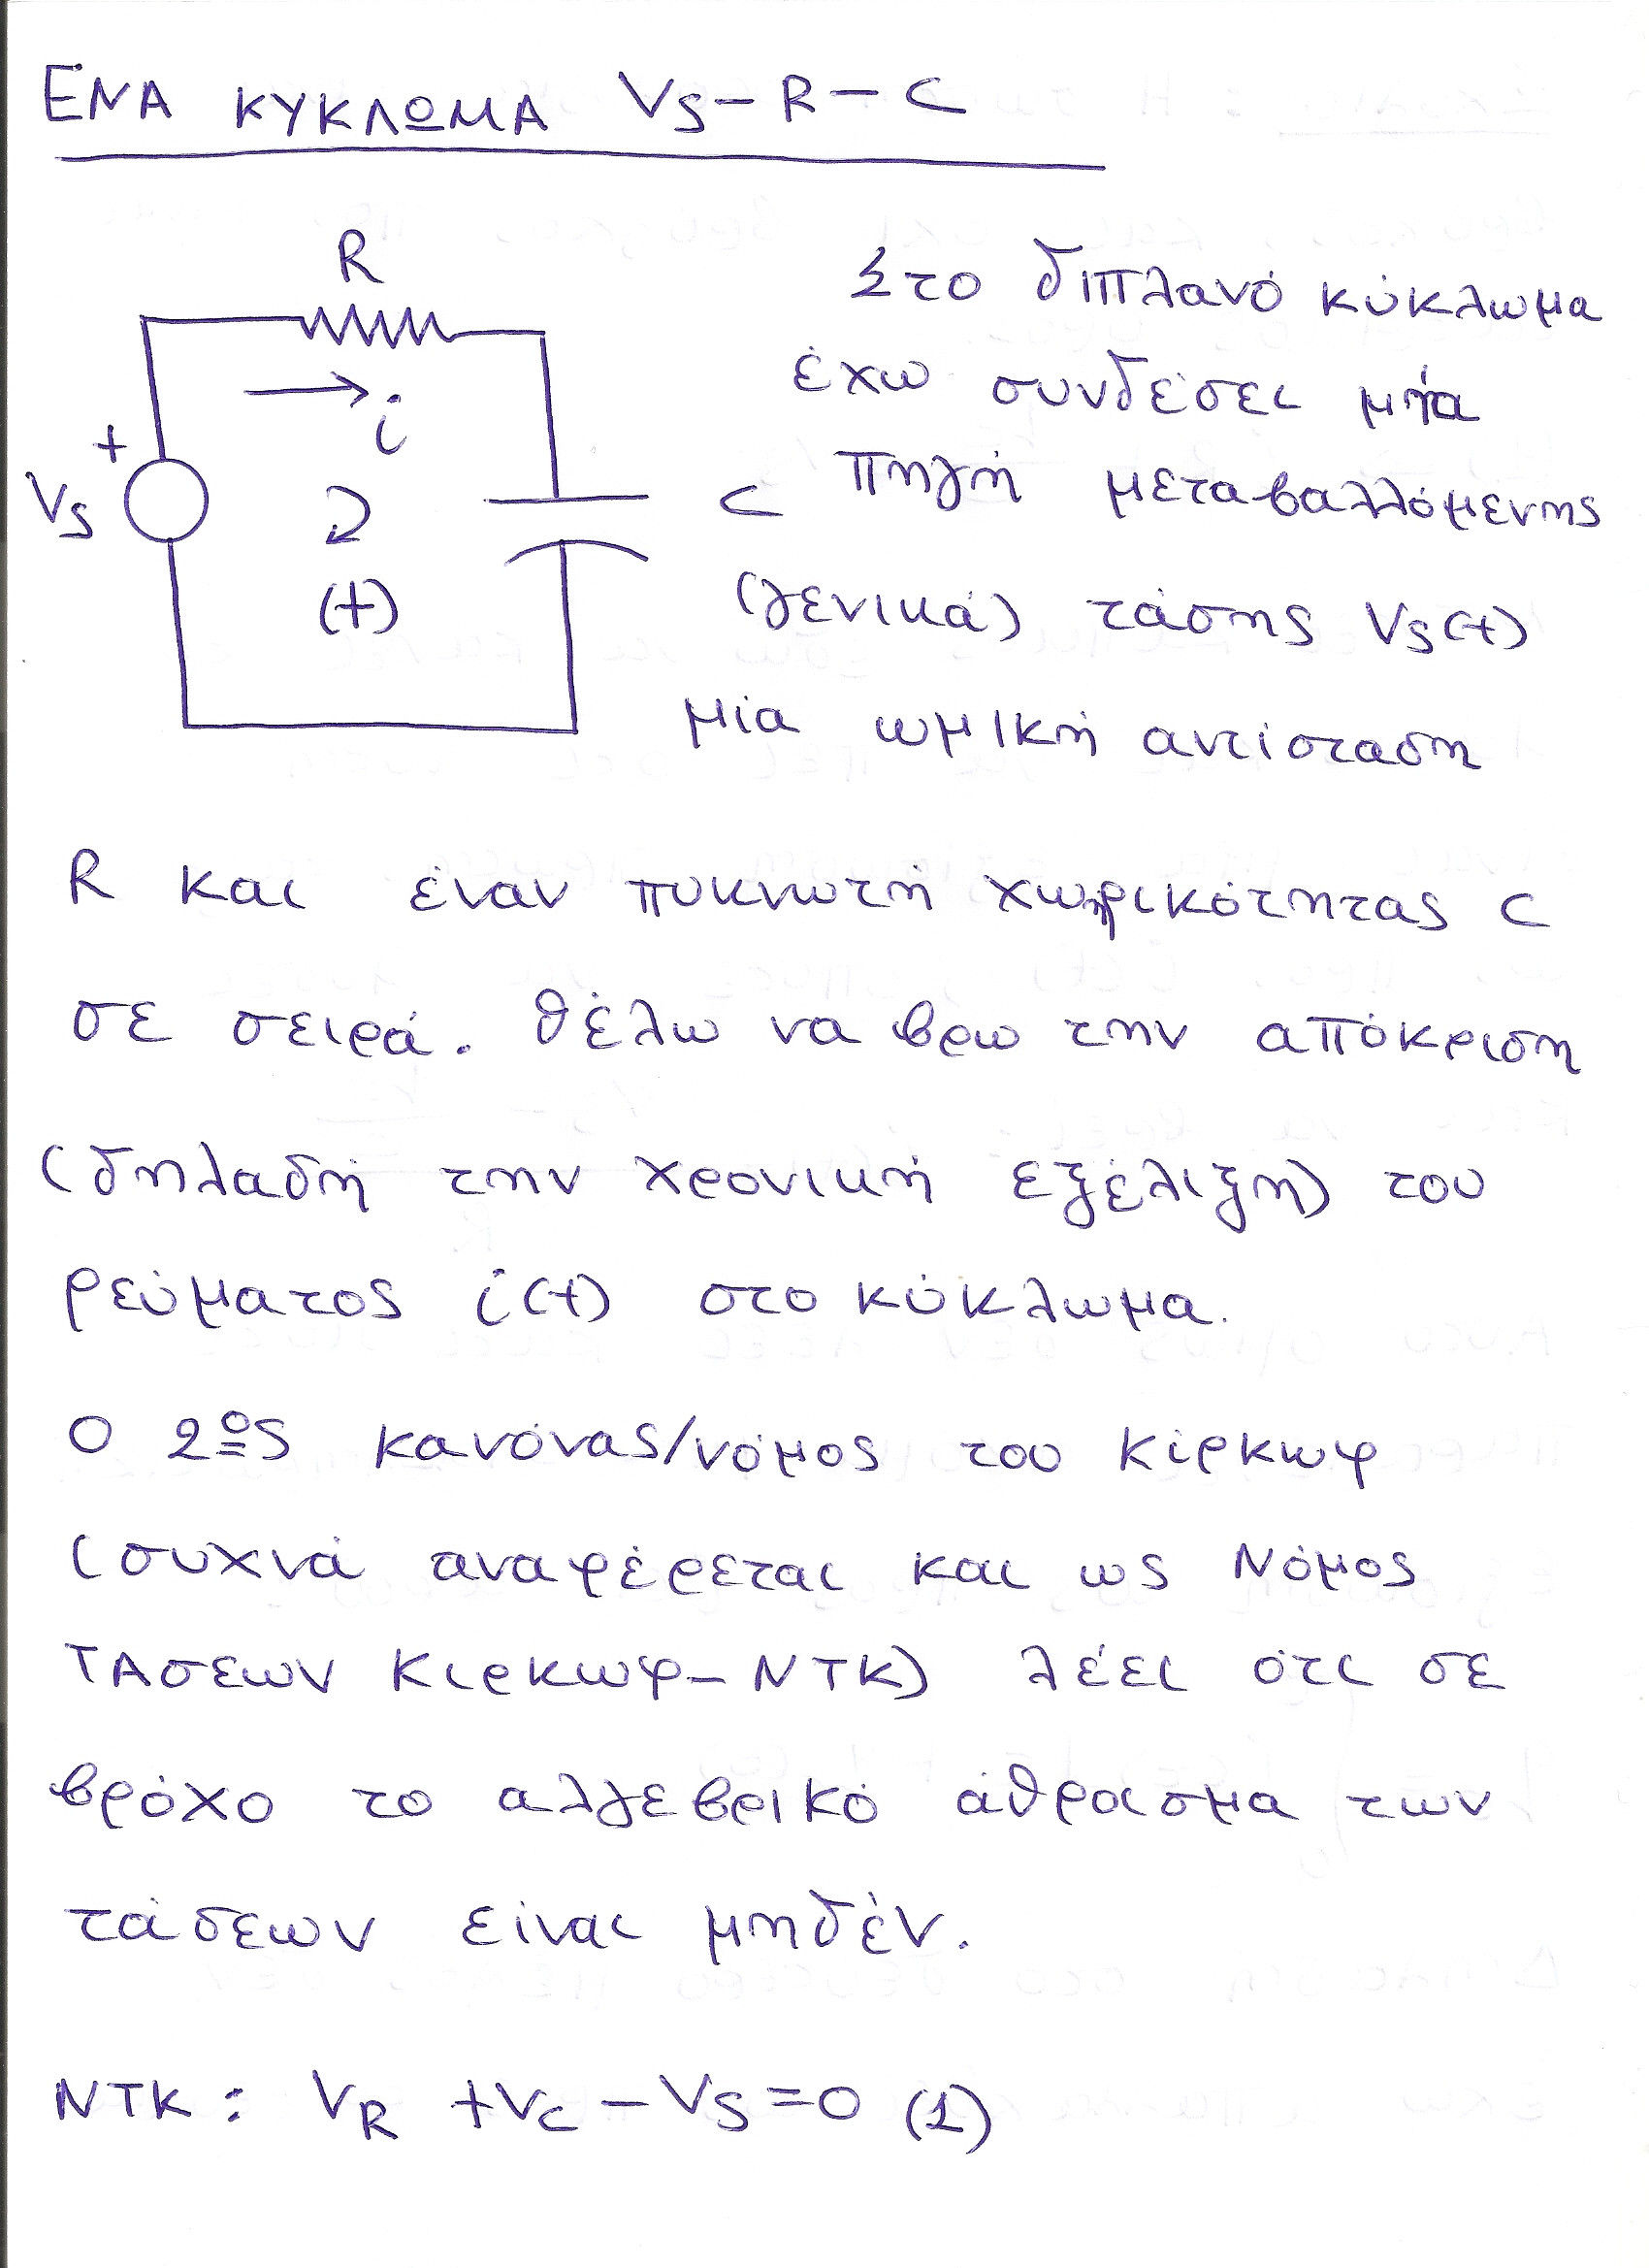 ΕΝΑ ΚΥΚΛΩΜΑ Vs-R-C
R
i
+
Vs
(+)
C
Στο διπλανό κύκλωμα
έχω συνδέσει μία
πηγή μεταβαλλόμενης
(γενικά) τάσης Vs(t)
μία ωμική αντίσταση
R και έναν πυκνωτή χωρικότητας C
σε σειρά. Θέλω να βρω την απόκριση
(δηλαδή την χρονική εξέλιξη) του
ρεύματος i(t) στο κύκλωμα.
Ο 2ος κανόνας/νόμος του Κίρκωφ
(συχνά αναφέρεται και ως Νόμος
ΤΑσεων Κιρκωφ-ΝΤΚ) λέει ότι σε
βρόχο το αλγεβρικό άθροισμα των
τάσεων είναι μηδέν.
ΝΤΚ: VR +Vc -Vs=0 (1)